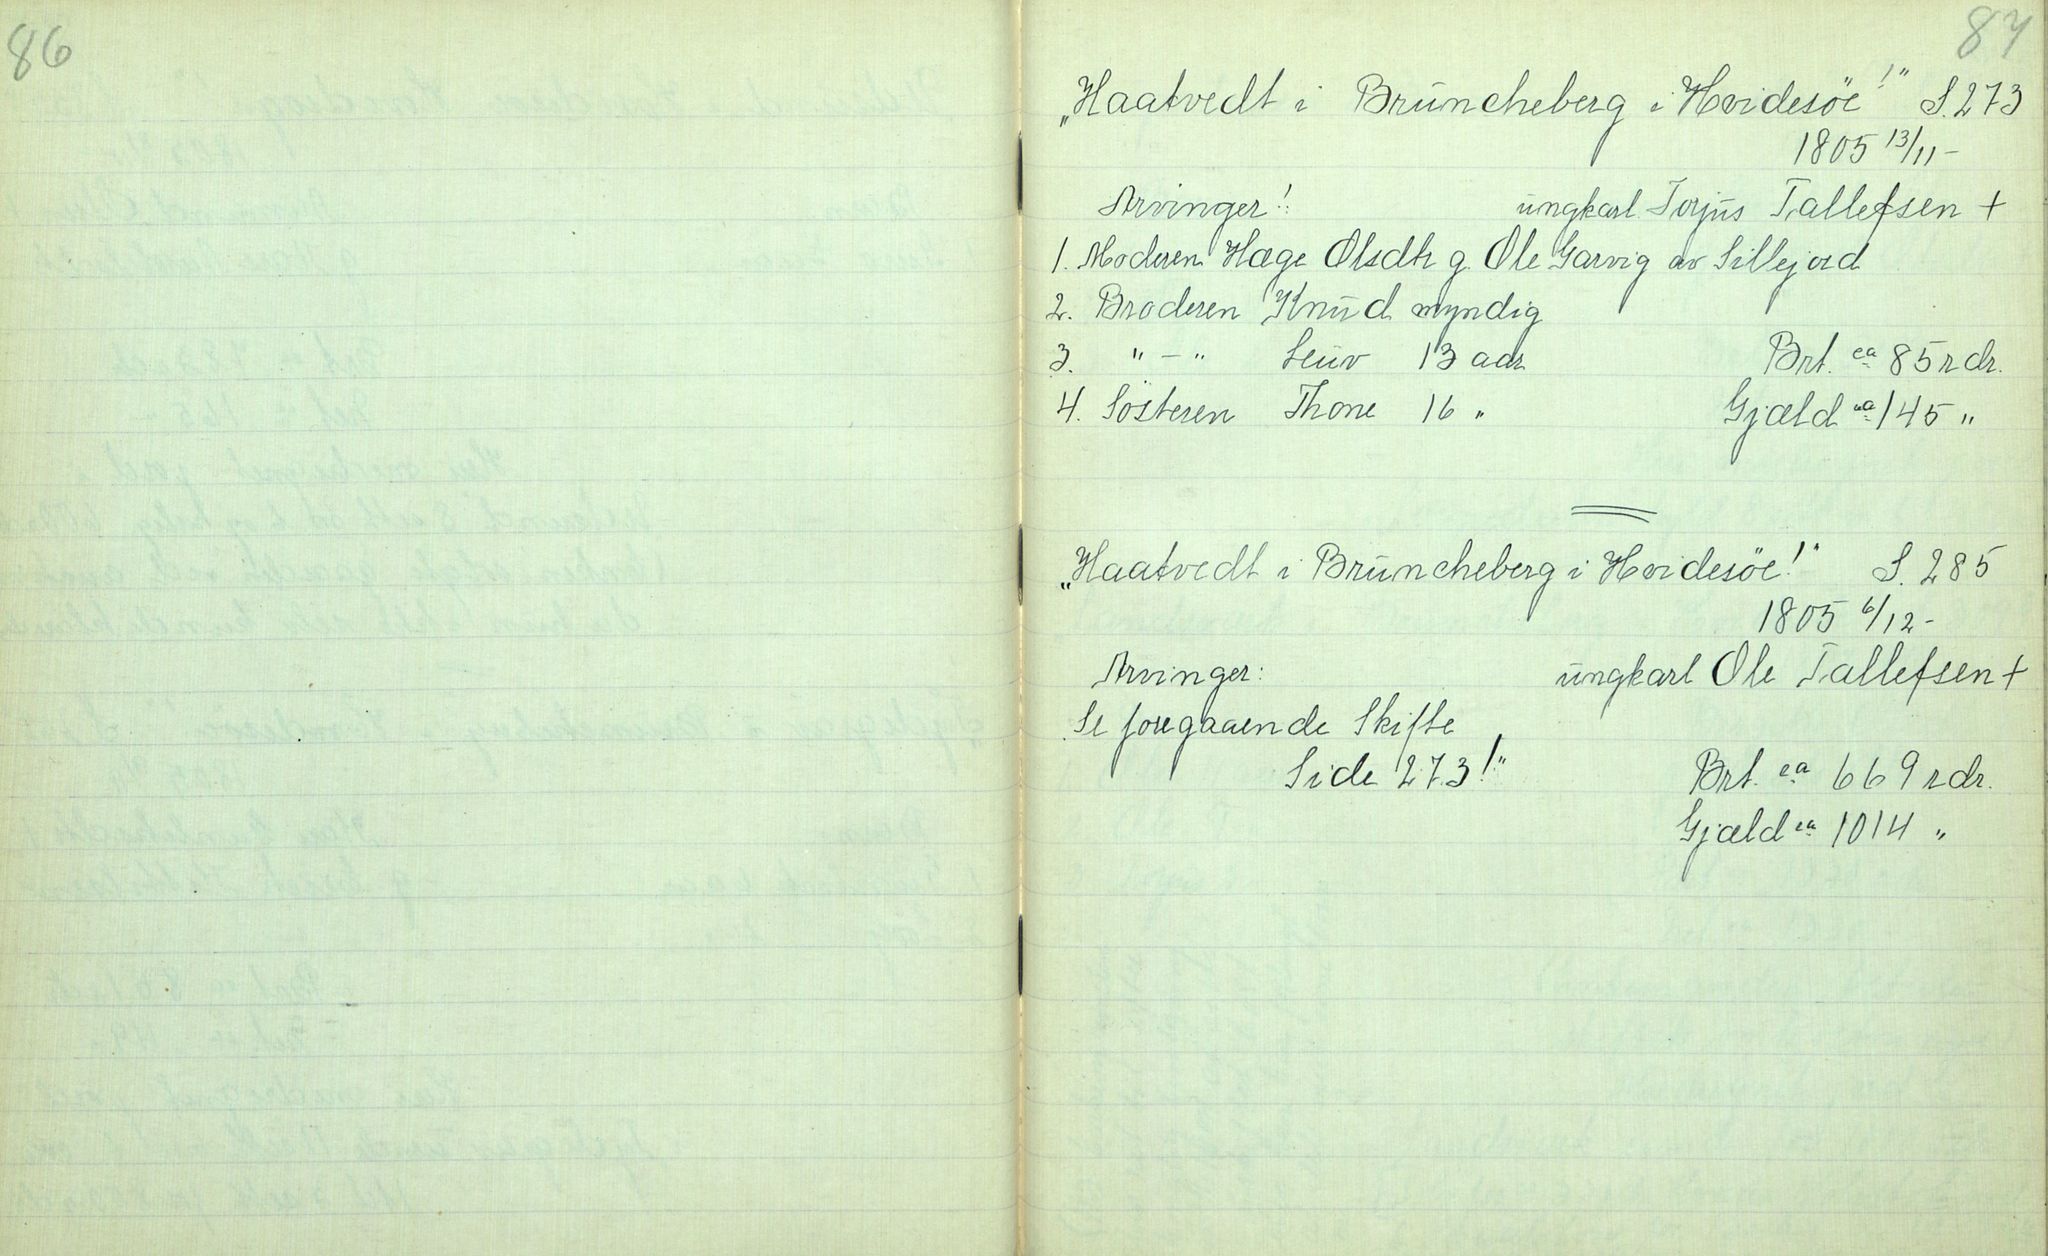 86
87
„Haatvedt i Brüncheberg i Hvidesöe!" S. 273
1805 13/11 -
Arvinger! : ungkarl Torjüs Tallefsen +
1. Moderen Hæge Olsdtr g. Ole Garvig av Sillejord
2. Broderen Knüd myndig
3. " - " Leüv 13 aar Brt. ca 85 rdr.
4. Søsteren Thone 16 " Gjæld ca 145 "
„Haatvedt i Brüncheberg i Hvidesöe!" S. 285
1805 6/12 -
Arvinger: üngkarl Ole Tallefsen +
Se foregaaende Skifte
Side 273!" Brt. ca 669 rdr.
Gjæld ca 1014 "